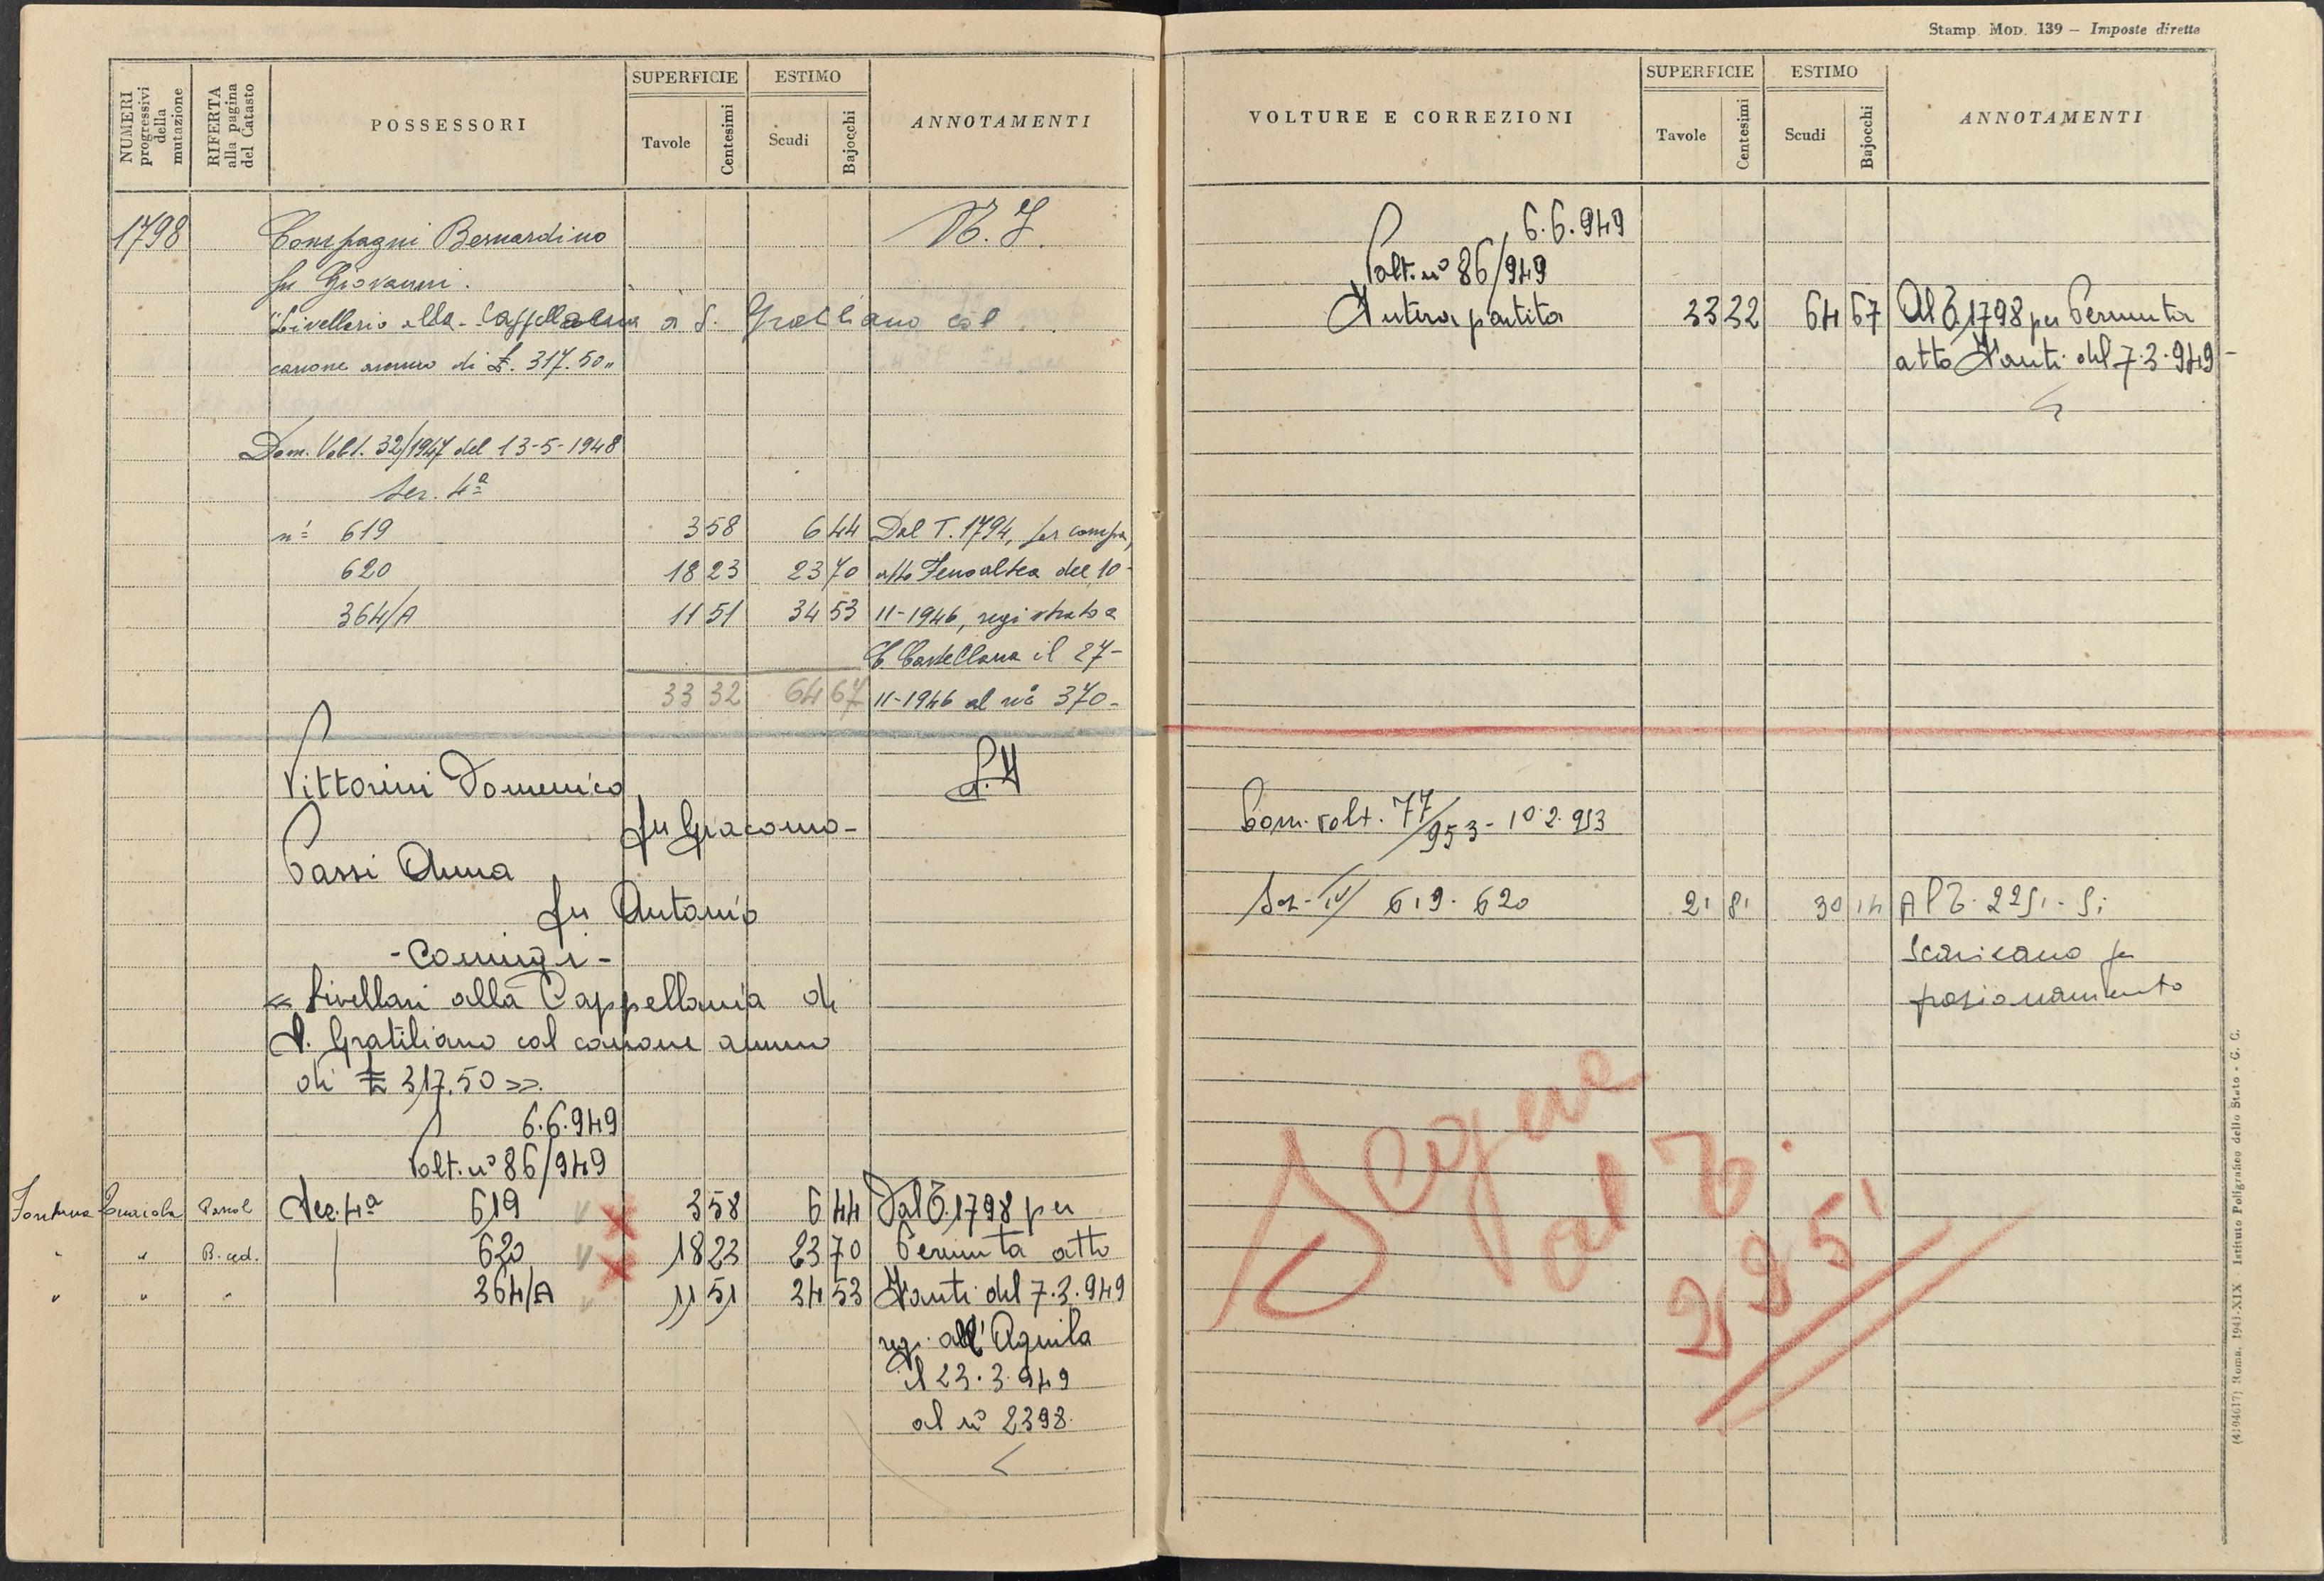 NUMERI progressivi della mutazione
RIFERTA alla pagina del Catasto
POSSESSORI
SUPERFICIE
Tavole
Centesimi
ESTIMO
Scudi
Bajocchi
ANNOTAMENTI
1798 Compagni Bernardino N. I.
fu Giovanni.
"Livellario alla Cappellania a S. Gratiliano col
canone annuo di £. 317.50"
Dom. Volt. 32/1947 del 13-5-1948
Sez. 4ª
nº 619 3 58 6 44 Dal T. 1794, per compra,
620 18 23 23 70 atto Fenoaltea del 10-
364/A 11 51 34 53 11-1946, registrato a
C. Castellana il 27-
33 32 64 67 11-1946 al nº 370-
Vittorini Domenico
fu Giacomo-
Anna
fu Antonio
-Coniugi-
« Livellari alla Cappellania di
S. Gratiliano col canone annuo
di £ 317.50 ».
6.6.949
Volt. nº 86/949
Sez. 4ª 619 3 58 6 44 Dal T. 1798 per
" " 620 18 23 23 70 Permuta atto
" " " 364/A 11 51 34 53 del 7.3.949
reg. all'Aquila
il 23.3.949
al nº 2398.
Stamp. MOD. 139 – Imposte dirette
VOLTURE E CORREZIONI
SUPERFICIE
Tavole
Centesimi
ESTIMO
Scudi
Bajocchi
ANNOTAMENTI
6.6.949
Volt. nº 86/949
Intera partita 33 32 64 67 Al T. 1798 per Permuta
atto del 7.3.949-
volt. 77/953 - 10.2.953
Sez. IV 619. 620 21 81 30 14 Al T. Si
scaricano per
frazionamento
al T.
(4194617) Roma, 1941-XIX Istituto Poligrafico dello Stato - G. C.